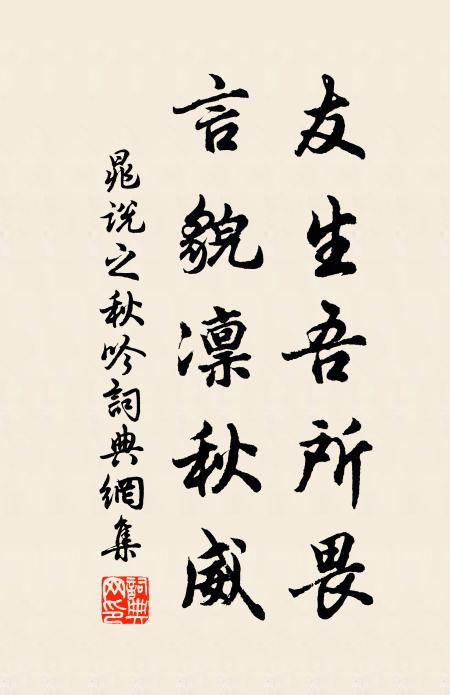 友生吾所畏
言貌凜秋威
晁說之秋吟詞典網集
詞典網印